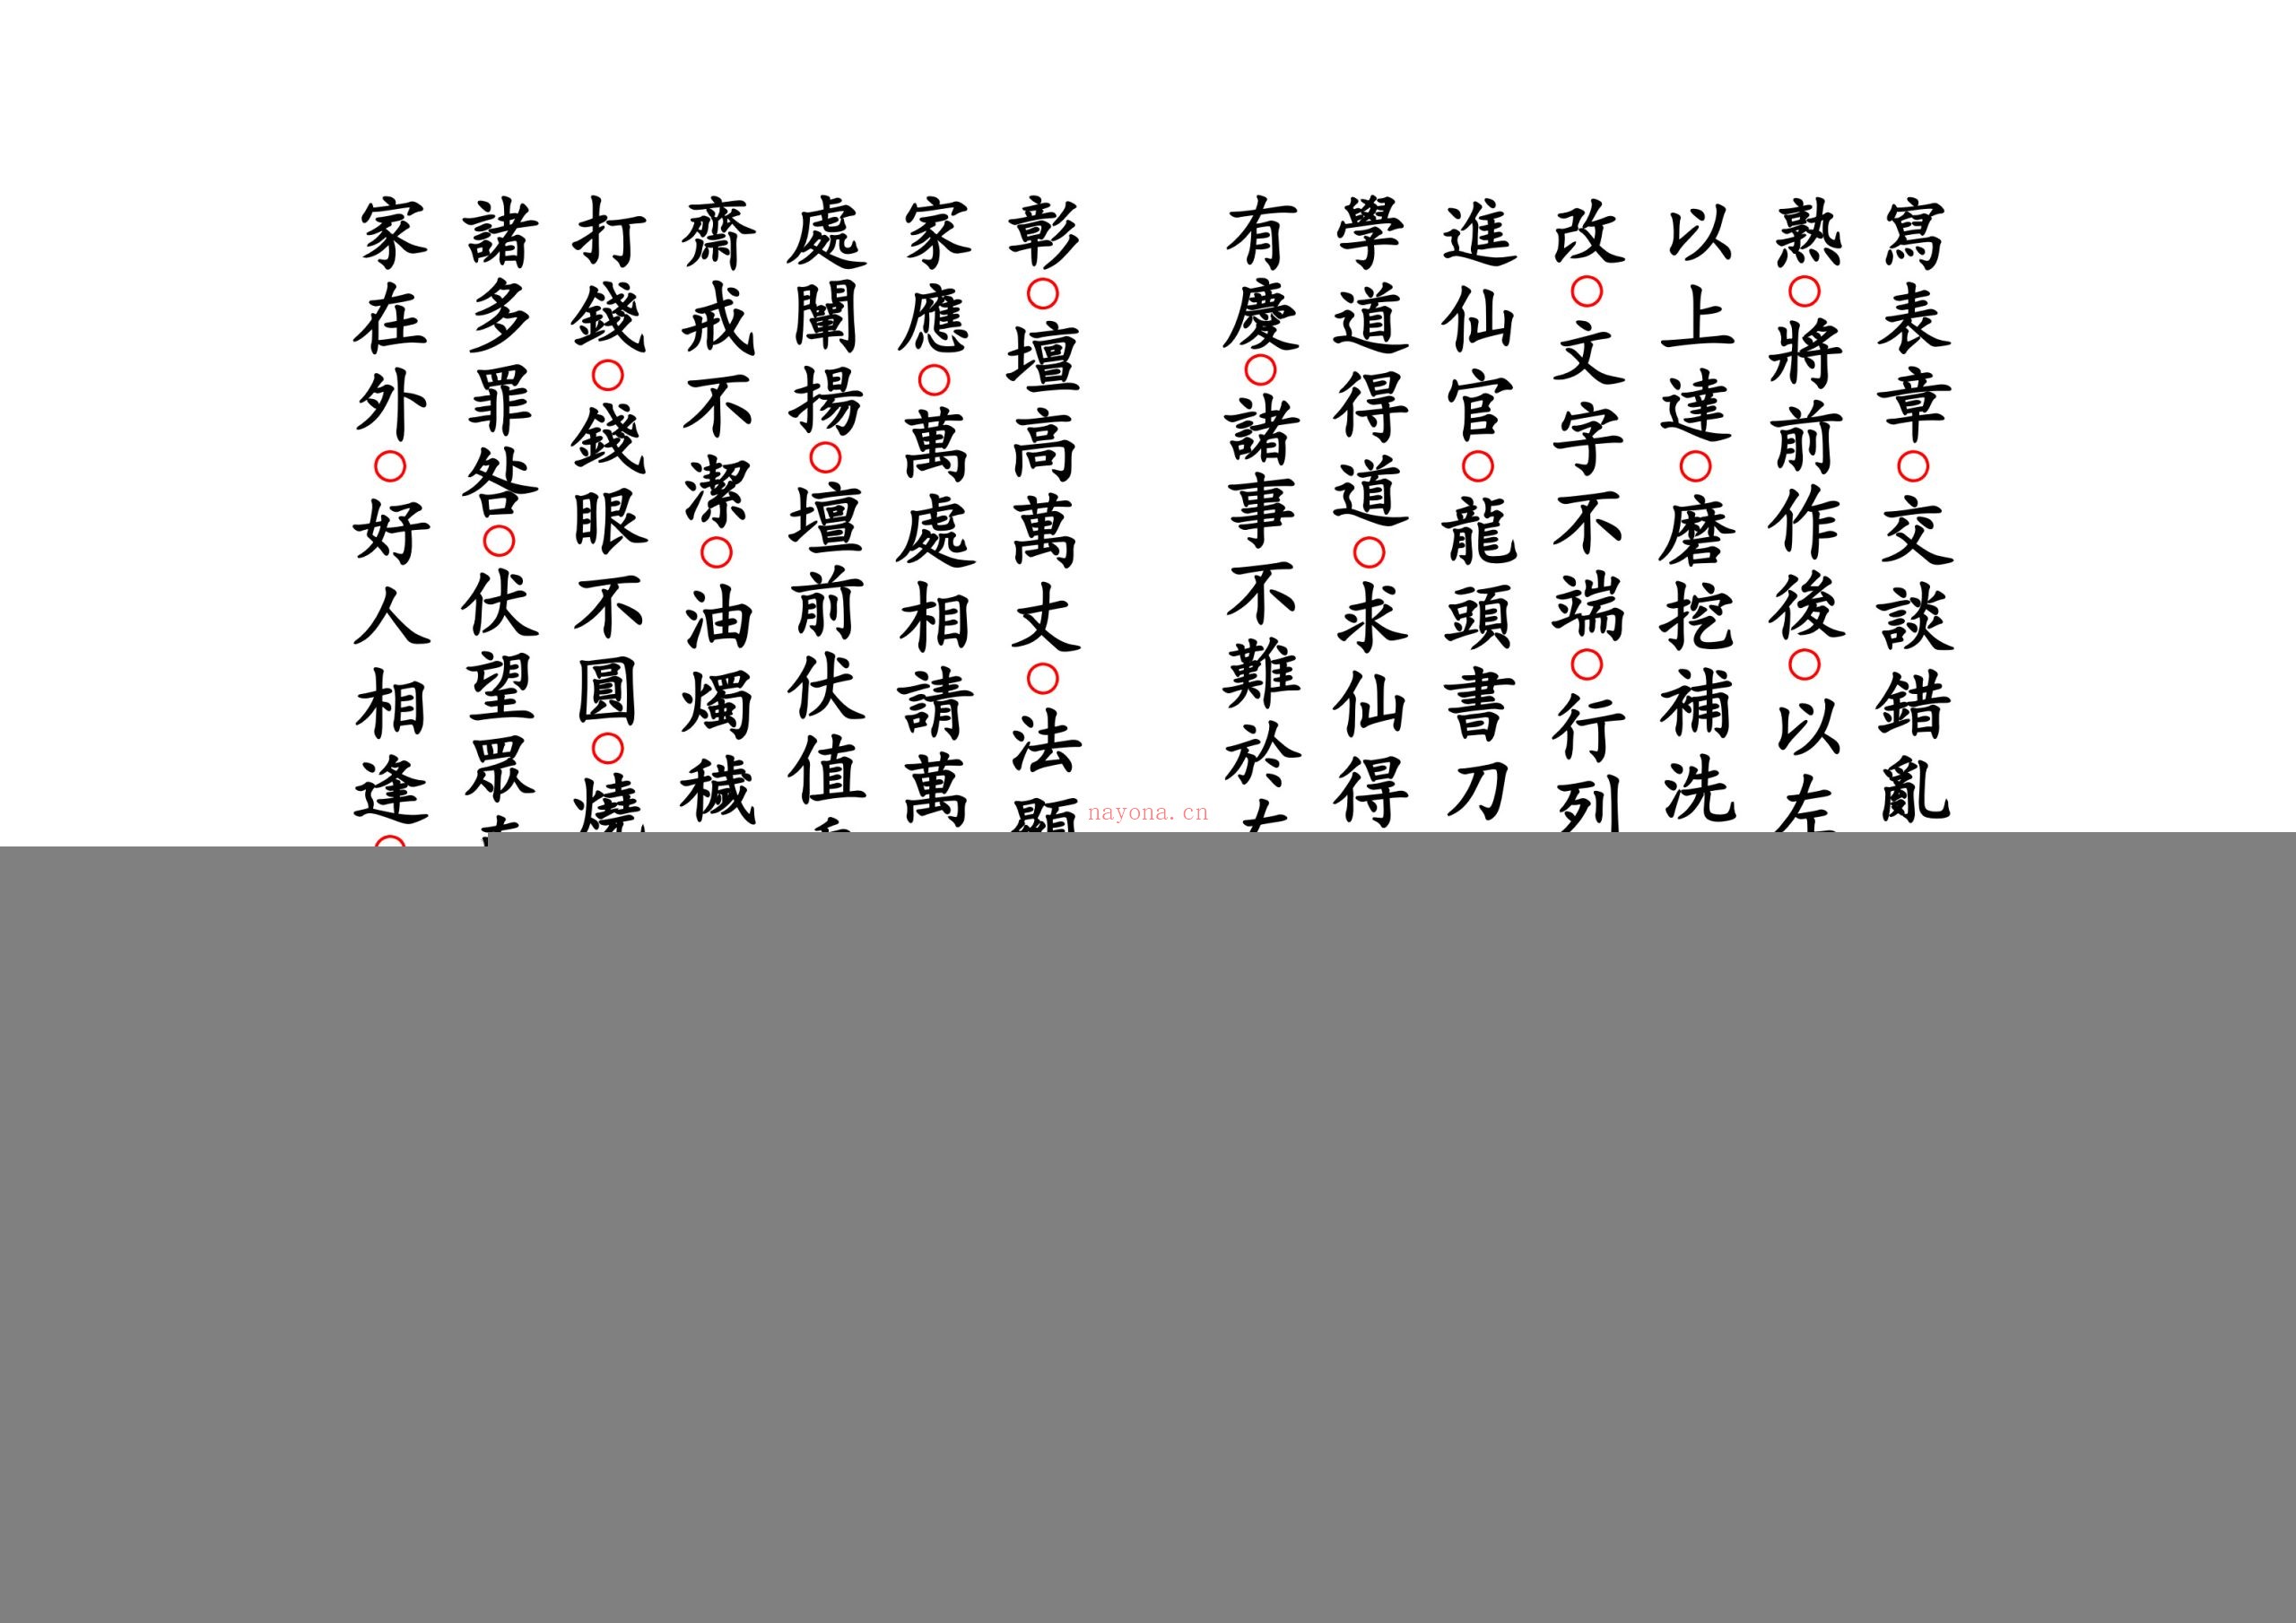 寫表章○交談錯亂
熟○將前作後○以
以上達○磨挖補洗
改○文字不端○行列
進仙官○龍頭書刀
學道得道○求仙得
有慶○諸事不難於
彰○壇高萬丈○法
家應○萬處相請萬
處闡揚○壇前伏值
齋戒不潔○油燭穢
打錢○錢眼不圓○燒
諸多罪咎○伏望眾
家在外○好人相逢○
nayona.cn